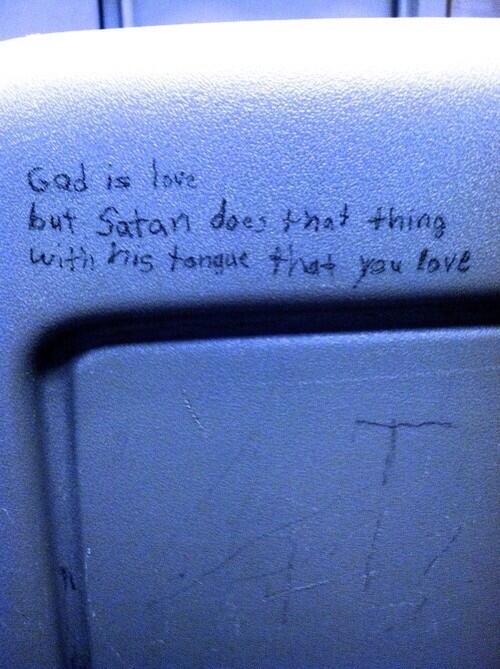 God is love
but Satan does that thing
with his tongue that you love
T